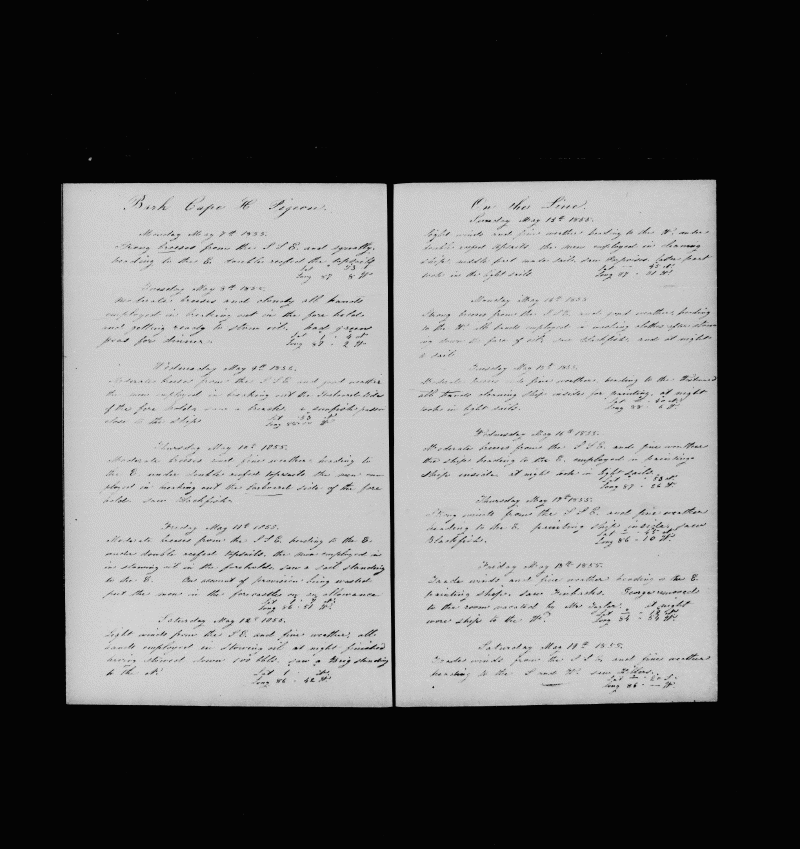 Bark Cape H. Pigeon.
Monday May 7th 1855.
Strong breeses from the S S E. and squally.
heading to the E. double reefed the topsails
Long 87 - 8 W
Tuesday May 8th 1855.
Moderate breeses and cloudy all hands
employed in breaking out in the fore hold
and getting ready to stow oil. had green
peas for dinner.
Long 87 - 2 W
Wednesday May 9th 1855.
Moderate breeses from the S S E and good weather
the men employed in breaking out the starboard side
of the fore hold. saw a breacher, a sunfish passed
close to the ship.
Thursday May 10th 1855.
Moderate breeses and fine weather heading to
the E under double reefed topsails the men em
ployed in working out the larboard side of the fore
hold. saw Blackfish.
Friday May 11th 1855.
Moderate breeses from the S S E. heading to the E.
under double reefed topsails. the men employed in
in stowing oil in the forehold. saw a sail standing
to the E. On account of provision being wasted
put the men in the forecastle on an allowance
Long 86 - 51 W.
Saturday May 12th 1855.
Light winds from the S E. and fine weather, all
hands employed in stowing oil at night finished
having stowed down 100 bbls. saw a Brig standing
to the N.
Long 86 - 42 W.
On the Line.
Sunday May 13th 1855.
Light winds and fine weather heading to the W. under
double reefed topsails. the men employed in cleaning
ship. middle part made sail. saw Grampuses latter part
took in the light sails
Long 87 - 21 W.
Monday May 14th 1855
Strong breeses from the S S E. and good weather, heading
to the W. All hands employed in washing clothes after stow
ing down the fore of oil. saw blackfish. and at night
sail.
Tuesday May 15th 1855.
Moderate breeses and fine weather. heading to the Westward
all hands cleaning ship insides for painting, at night
took in light sails.
Wednesday May 16th 1855.
Moderate breeses from the S S E. and fine weather
the ships heading to the E. employed in painting
ships inside. at night took in light sails.
Long 87 - 26 W.
Thursday May 17th 1855.
Strong winds from the S S E. and fine weather
heading to the E. painting ships inside. saw
Blackfish.
Long 86 - 10 W.
Friday May 18th 1855.
Trade winds and fine weather heading to the E.
painting ship. saw Finbacks. George removed
to the room vacated by Mr. at night
wore ships to the W.
Saturday May 19th 1855.
Trades winds from the S S E. and fine weather
heading to the S and W. saw